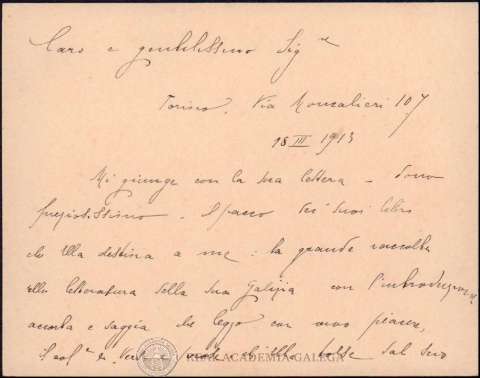 Caro e gentilissimo Sig.re
Torino, Via Moncalieri 107
18 III 1913
Mi giunge con la sua lettera – dono
pregiatissimo – il pacco dei suoi libri
che Ella destina a me: la grande raccolta
della letteratura della sua Galizia con l'introduzione
accorta e saggia che leggo con vivo piacere,
il vol.e di Versi e prose ch'Ella tolse dal
REAL ACADEMIA GALEGA